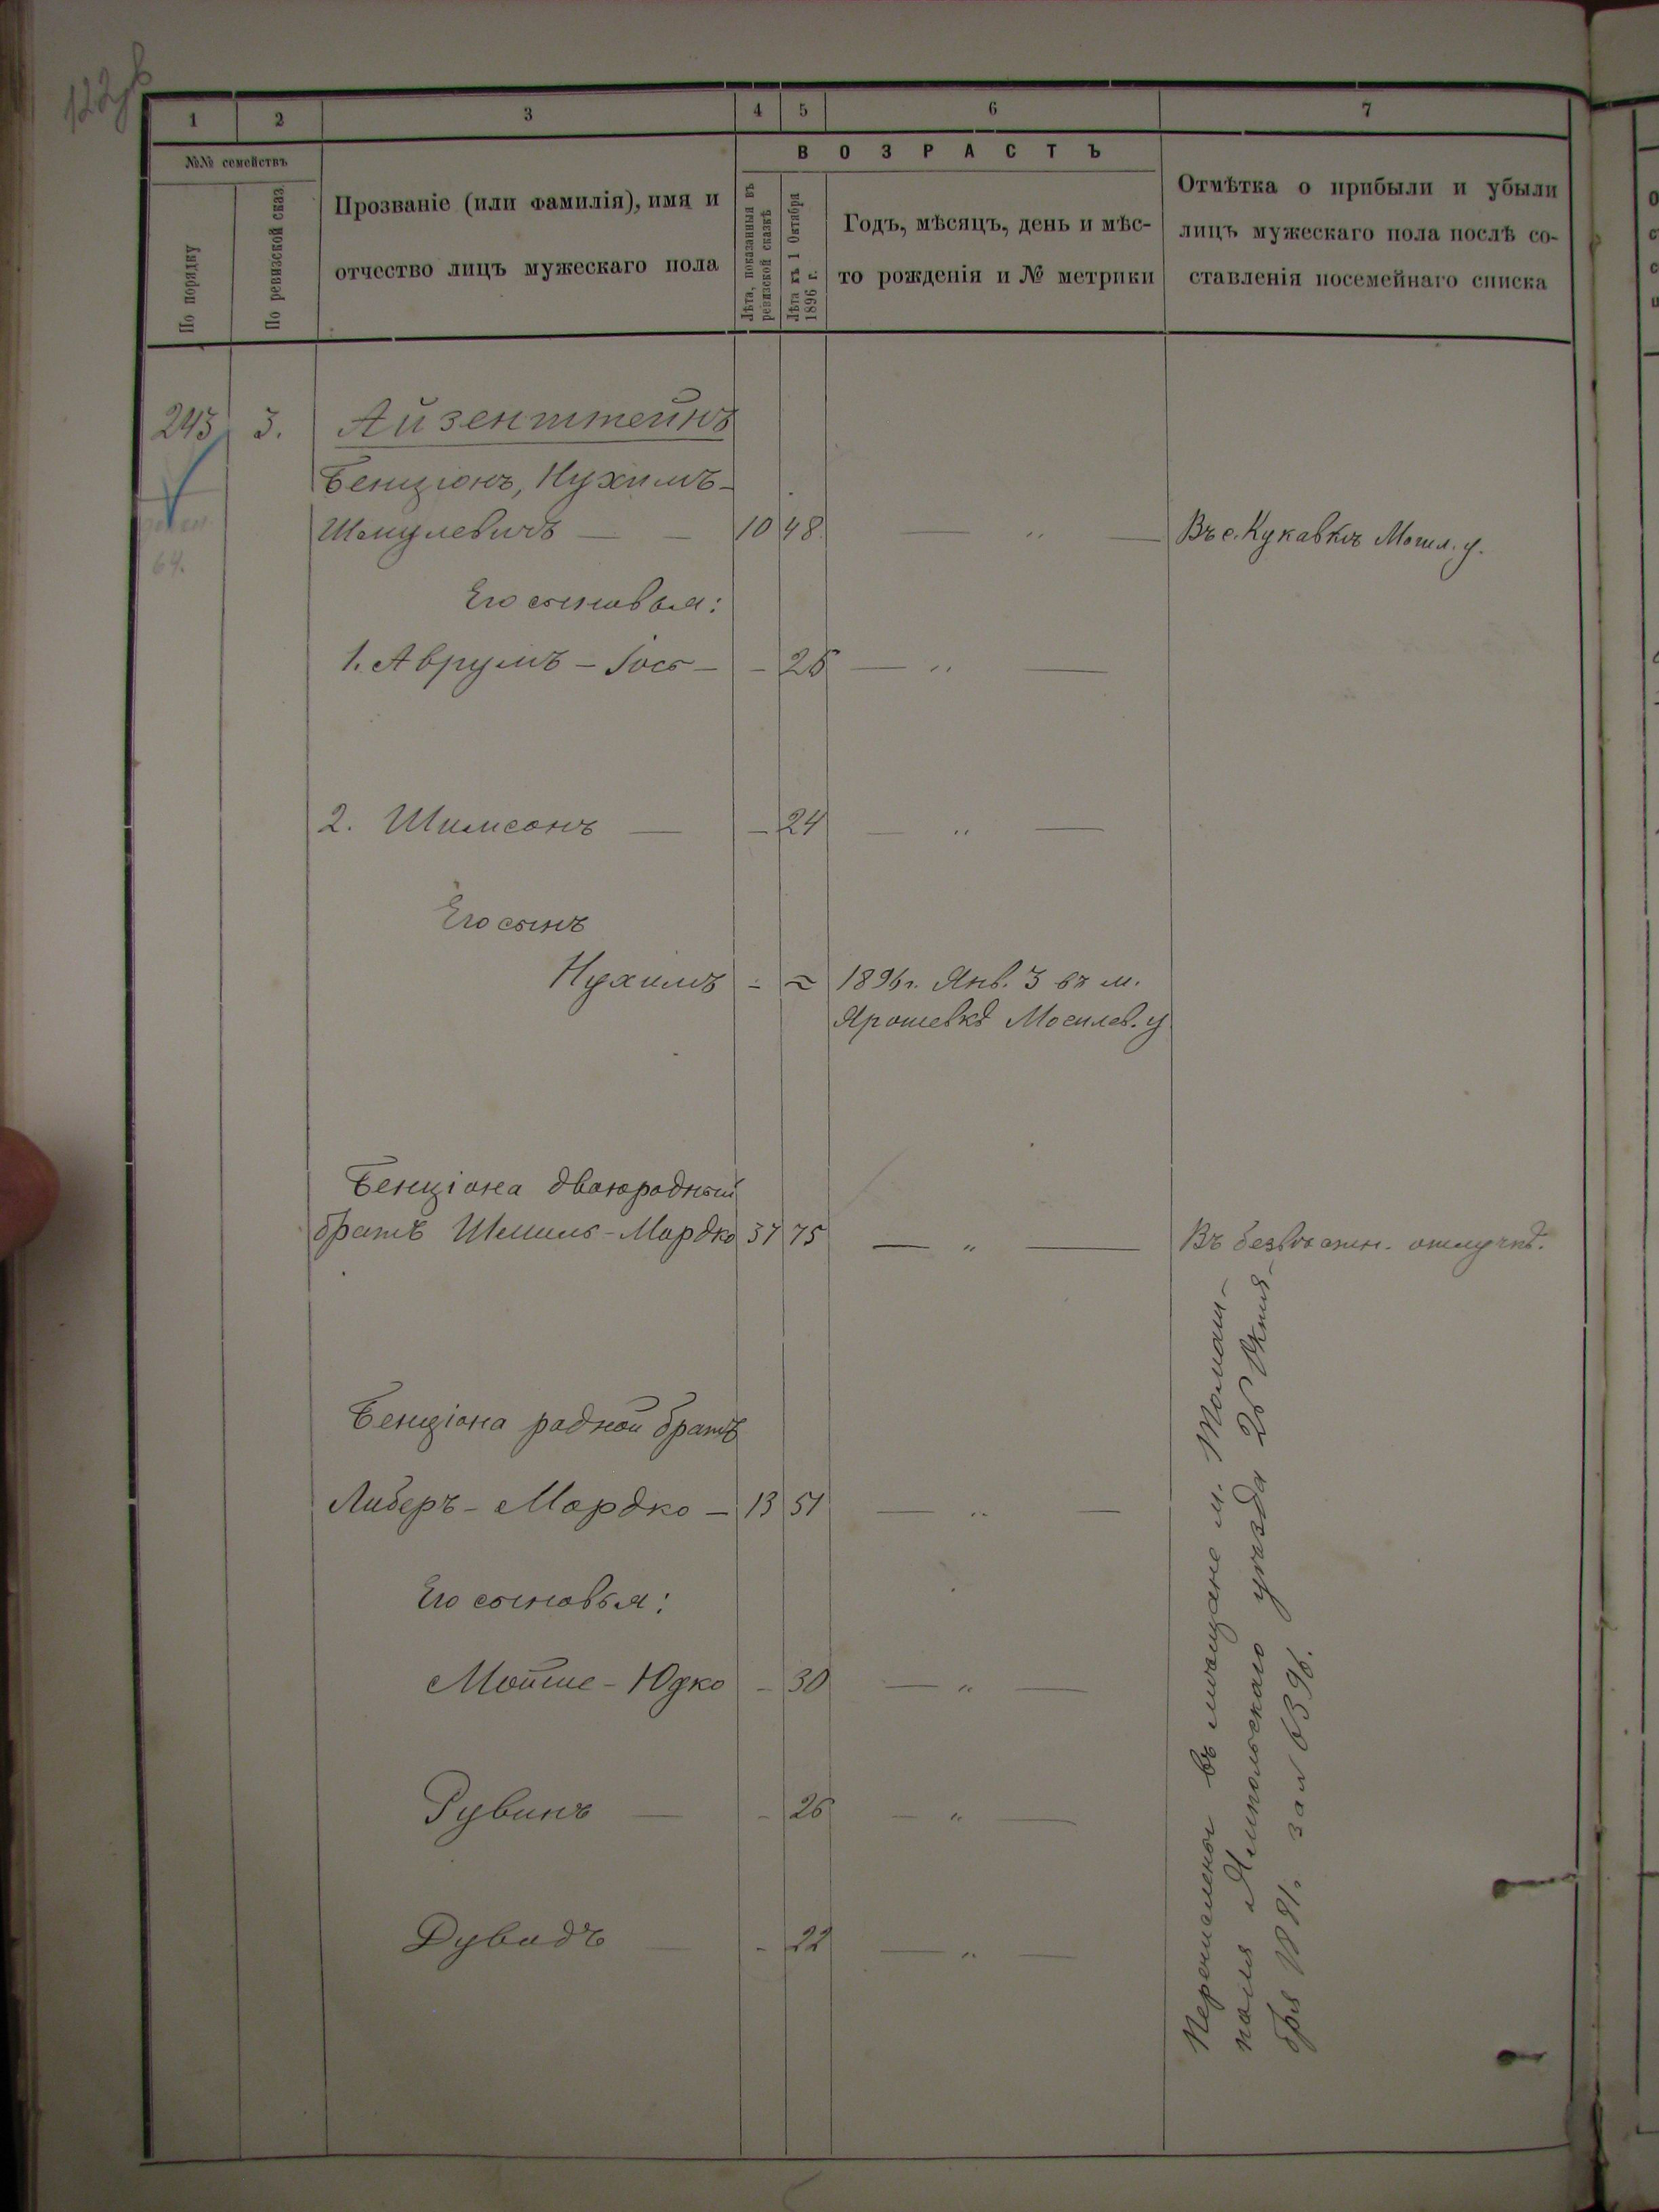 1 2 3 4 5 6 7
№№ семействъ
По порядку
По ревизской сказ.
Прозваніе (или фамилія), имя и
отчество лицъ мужескаго пола
ВОЗРАСТЪ
Лѣта, показанныя въ
ревизской сказкѣ
Лѣта къ 1 Октября
1896 г.
Годъ, мѣсяцъ, день и мѣс-
то рожденія и № метрики
Отмѣтка о прибыли и убыли
лицъ мужескаго пола послѣ со-
ставленія посемейнаго списка
243 3. Айзенштейнъ
Бенціонъ, Нухимъ-
Шмулевичъ — — 10 48 — „ — Въ с. Кукавкѣ Могил. у.
64.
Его сыновья:
1. Аврумъ - Іось - - 26 — „ —
2. Шимсонъ — - 24 — „ —
Его сынъ
Нухимъ - = 1896 г. Янв. 3 въ м.
Ярошевкѣ Могилев. у
Бенціона двоюродный
братъ Шмиль - Мордко 37 75 — „ — Въ безвѣстн. отлучкѣ.
Бенціона родной братъ
Либеръ - Мордко - 13 51 — „ —
Его сыновья:
Мойше - Юдко - 30 — „ —
Рувинъ — - 26 — „ —
Дувидъ — - 22 — „ —
Перечислены въ мѣщане м. Томаш-
поля Ямпольскаго уѣзда 26 Октя-
бря 1891 г. за № 6396.